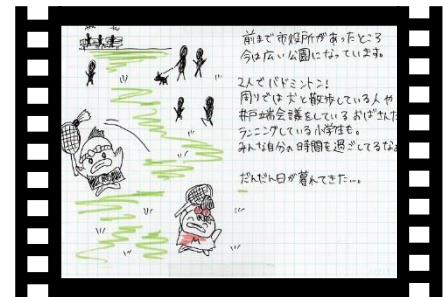 前まで市役所があったところ
今は広い公園になっています。
2人でバドミントン!
周りでは犬と散歩している人や
井戸端会議をしているおばさんた
ランニングしている小学生も。
みんな自分の時間を過ごしてるなぁ
だんだん日が暮れてきた…。
M